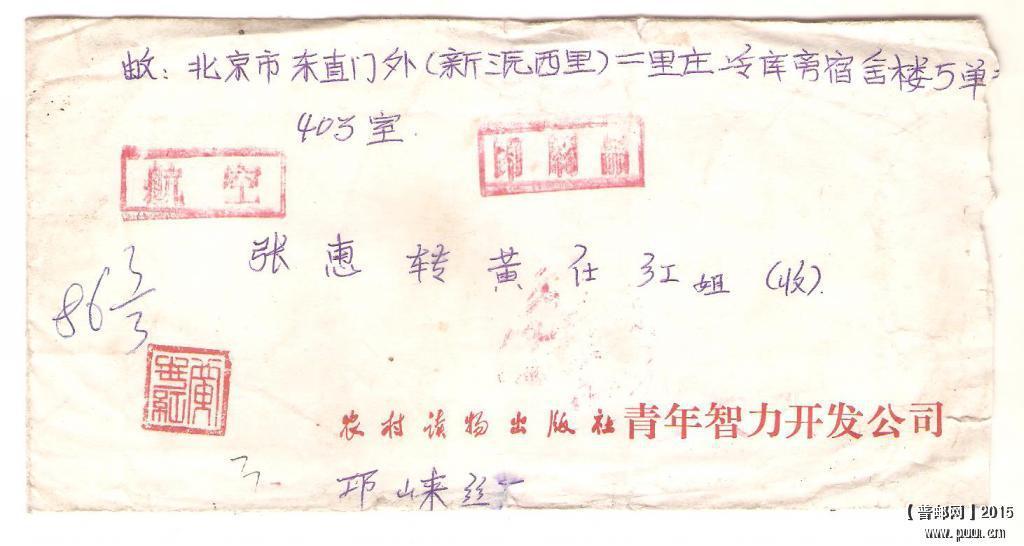 邮：北京市东直门外(新源西里)一里庄冷库旁宿舍楼5单
403室.
航空
印刷品
张惠转黄仕红姐(收).
86 3/3
农村读物出版社 青年智力开发公司
邛崃丝
【普邮网】2015
www.puui.cn